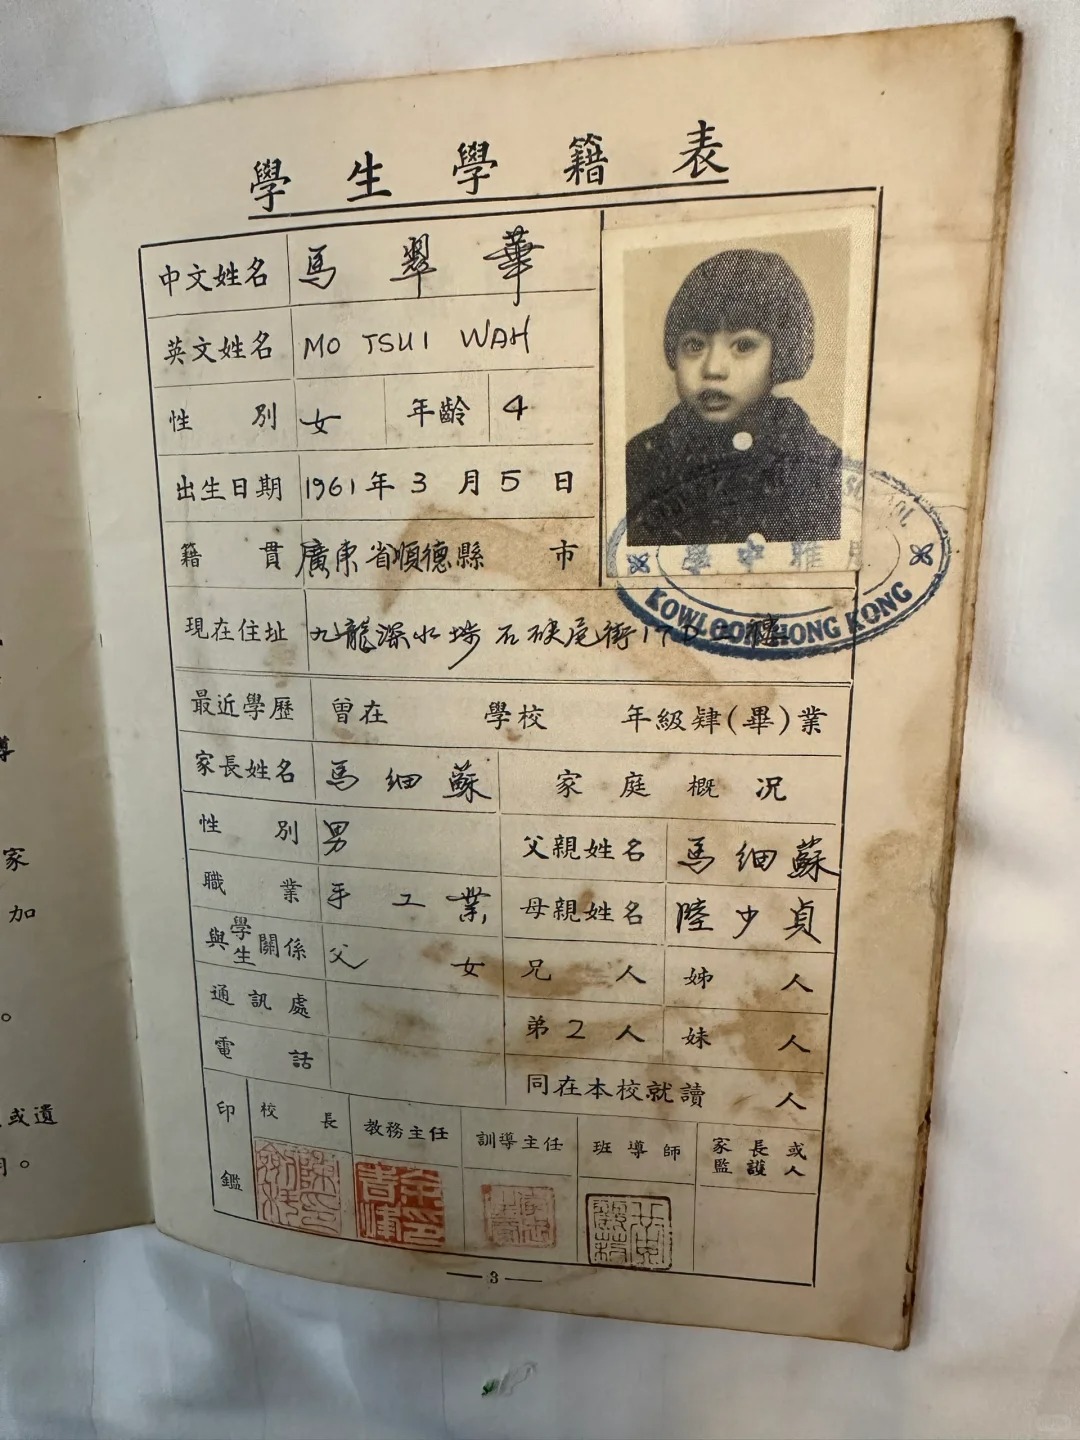 學生學籍表
中文姓名 馬翠華
英文姓名 MO TSUI WAH
性別 女 年齡 4
出生日期 1961年3月5日
籍貫 廣東省順德縣市
現在住址 九龍深水埗石硤尾街17D二樓
KOWLOON HONG KONG
最近學歷 曾在 學校 年級肄(畢)業
家長姓名 馬細蘇 家庭概況
性別 男 父親姓名 馬細蘇
職業 手工業 母親姓名 陸少貞
與學生關係 父女 兄 人 姊 人
通訊處 弟2人 妹 人
電話 同在本校就讀 人
印鑑 校長 教務主任 訓導主任 班導師 家長或監護人
3
導
家
加
。
或遺
。